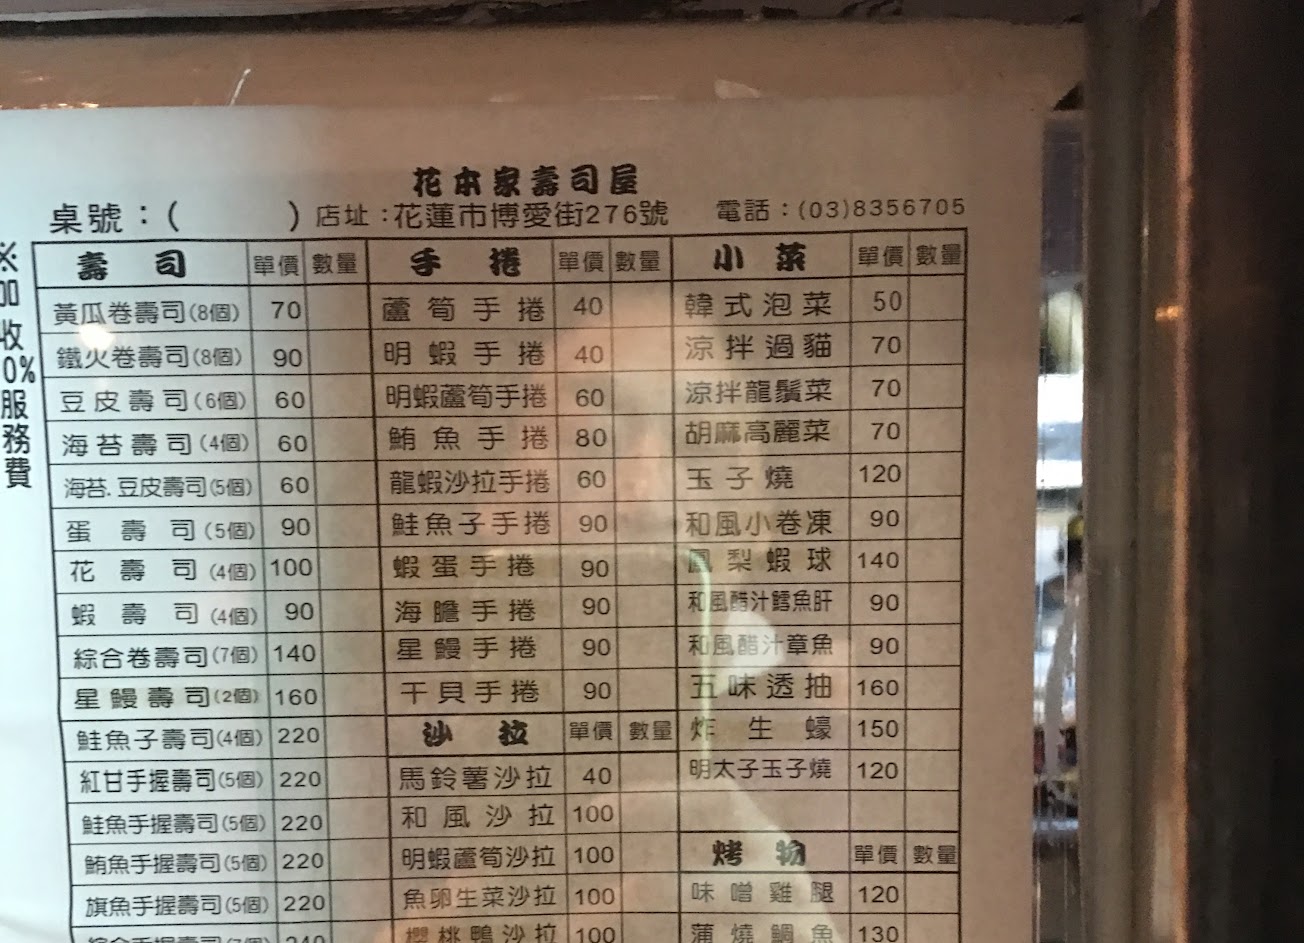 花本家壽司屋
桌號：(　　　) 店址：花蓮市博愛街276號 電話：(03)8356705
※加收10%服務費
壽司 單價 數量 手捲 單價 數量 小菜 單價 數量
黃瓜卷壽司(8個) 70 蘆筍手捲 40 韓式泡菜 50
鐵火卷壽司(8個) 90 明蝦手捲 40 涼拌過貓 70
豆皮壽司(6個) 60 明蝦蘆筍手捲 60 涼拌龍鬚菜 70
海苔壽司(4個) 60 鮪魚手捲 80 胡麻高麗菜 70
海苔.豆皮壽司(5個) 60 龍蝦沙拉手捲 60 玉子燒 120
蛋壽司(5個) 90 鮭魚子手捲 90 和風小卷凍 90
花壽司(4個) 100 蝦蛋手捲 90 鳳梨蝦球 140
蝦壽司(4個) 90 海膽手捲 90 和風醋汁鱈魚肝 90
綜合卷壽司(7個) 140 星鰻手捲 90 和風醋汁章魚 90
星鰻壽司(2個) 160 干貝手捲 90 五味透抽 160
鮭魚子壽司(4個) 220 沙拉 單價 數量 炸生蠔 150
紅甘手握壽司(5個) 220 馬鈴薯沙拉 40 明太子玉子燒 120
鮭魚手握壽司(5個) 220 和風沙拉 100
鮪魚手握壽司(5個) 220 明蝦蘆筍沙拉 100 烤物 單價 數量
旗魚手握壽司(5個) 220 魚卵生菜沙拉 100 味噌雞腿 120
綜合手握壽司(7個) 240 櫻桃鴨沙拉 100 蒲燒鯛魚 130